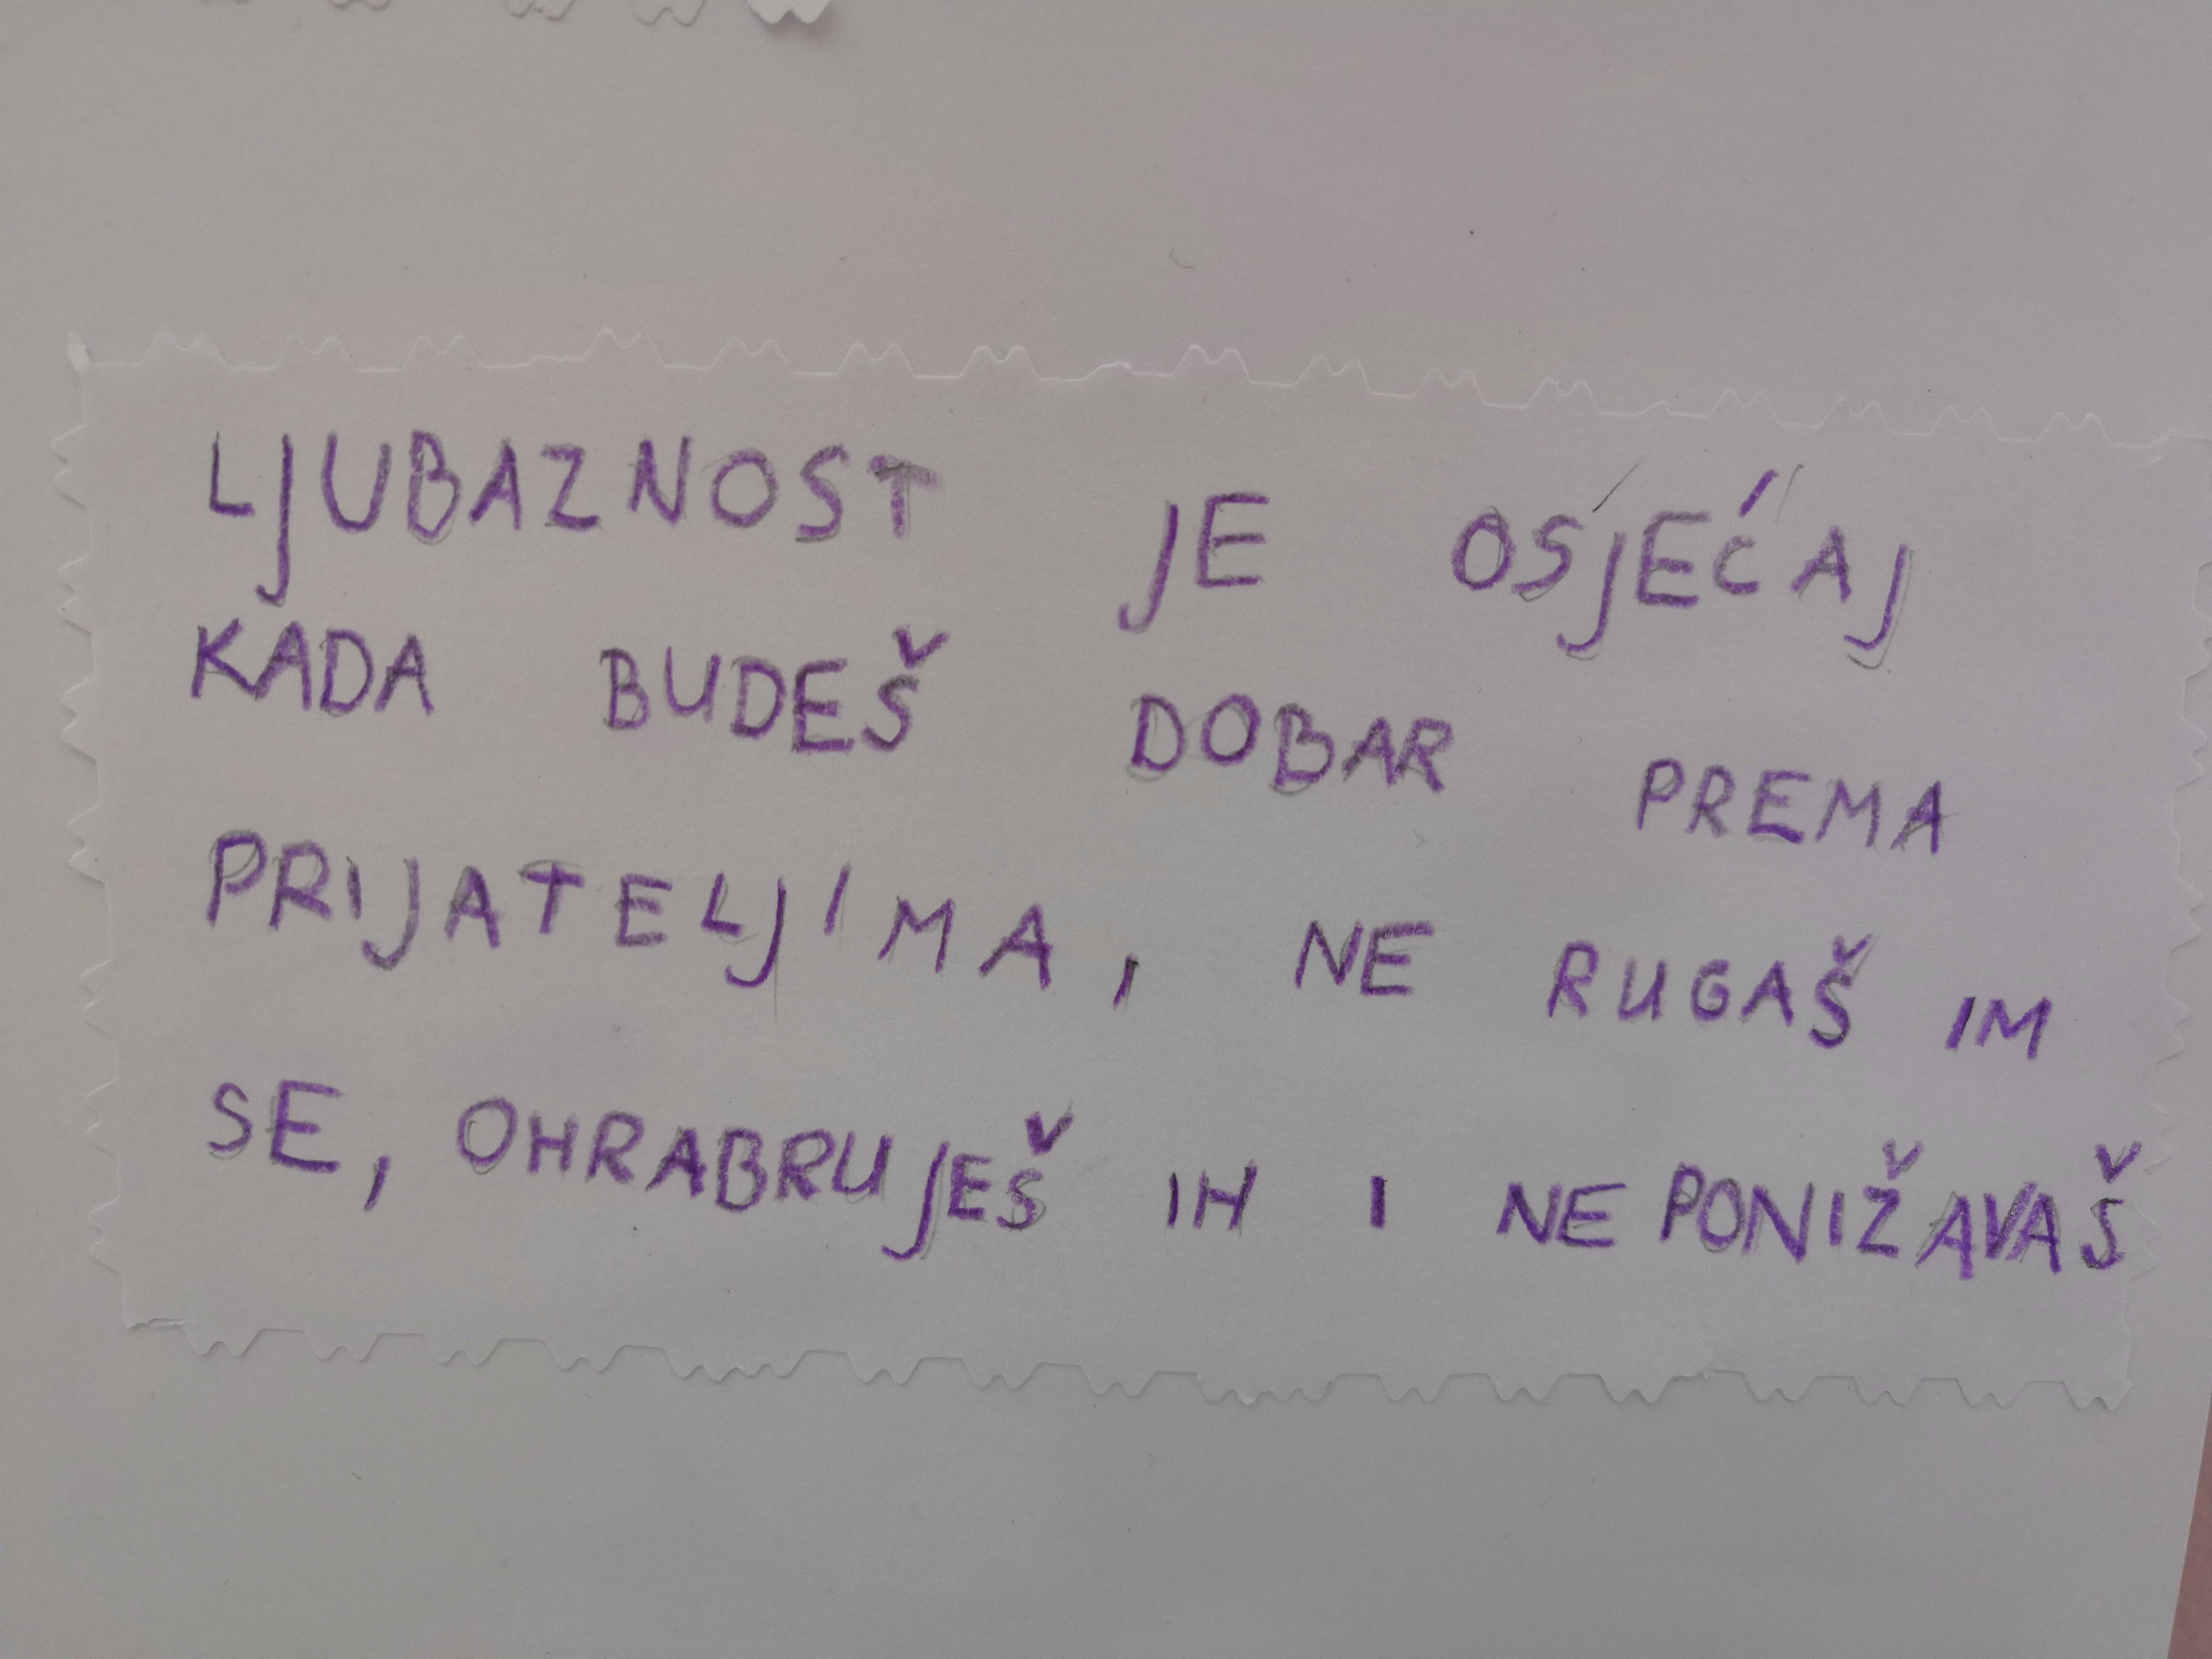 LJUBAZNOST JE OSJEĆAJ
KADA BUDEŠ DOBAR PREMA
PRIJATELJIMA, NE RUGAŠ IM
SE, OHRABRUJEŠ IH I NE PONIŽAVAŠ